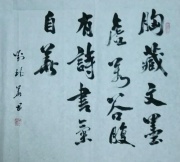 胸藏文墨
虚若谷腹
有詩書氣
自華